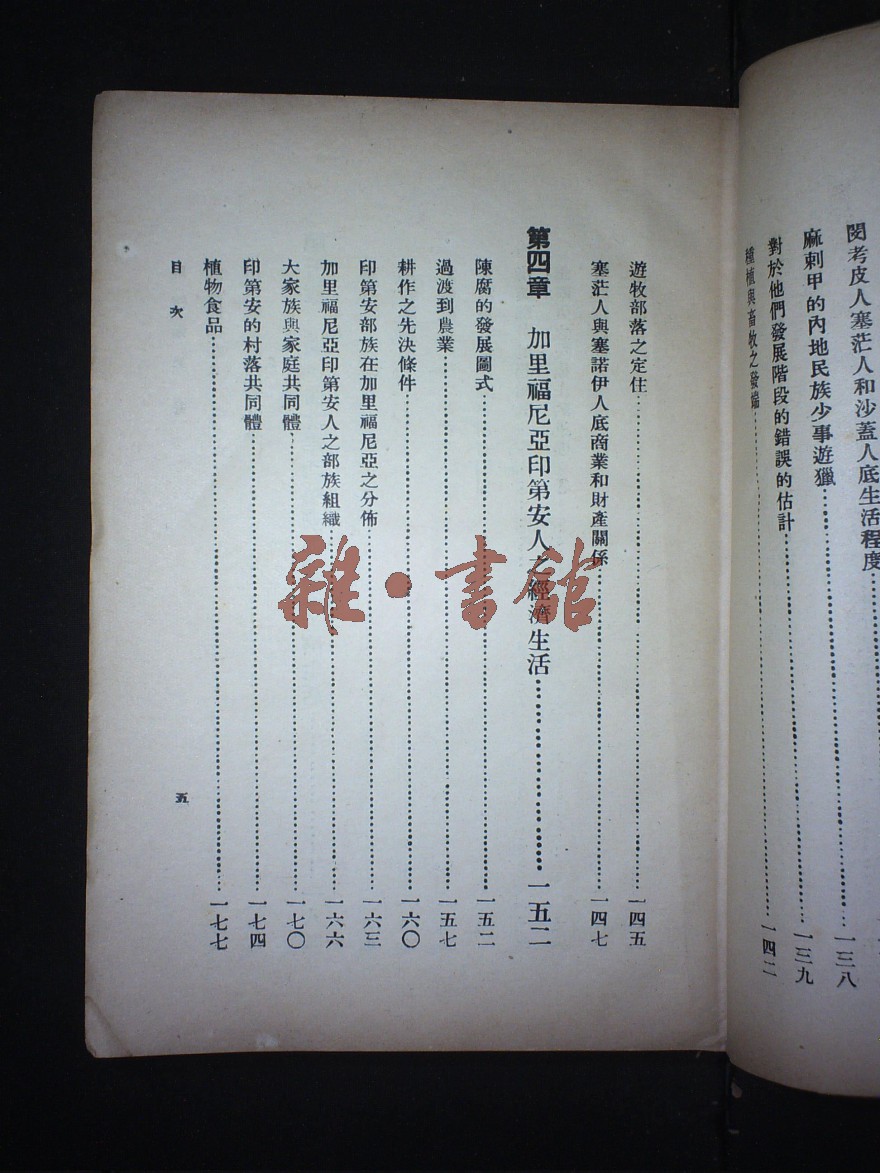 閔考皮人塞茫人和沙蓋人底生活程度……一三八
麻剌甲的內地民族少事遊獵……一三九
對於他們發展階段的錯誤的估計……一四二
種植與畜牧之發端
遊牧部落之定住……一四五
塞茫人與塞諾伊人底商業和財產關係……一四七
第四章 加里福尼亞印第安人之經濟生活……一五二
陳腐的發展圖式……一五二
過渡到農業……一五七
耕作之先決條件……一六〇
印第安部族在加里福尼亞之分佈……一六三
加里福尼亞印第安人之部族組織……一六六
大家族與家庭共同體……一七〇
印第安的村落共同體……一七四
植物食品……一七七
目次
五
雜·書館